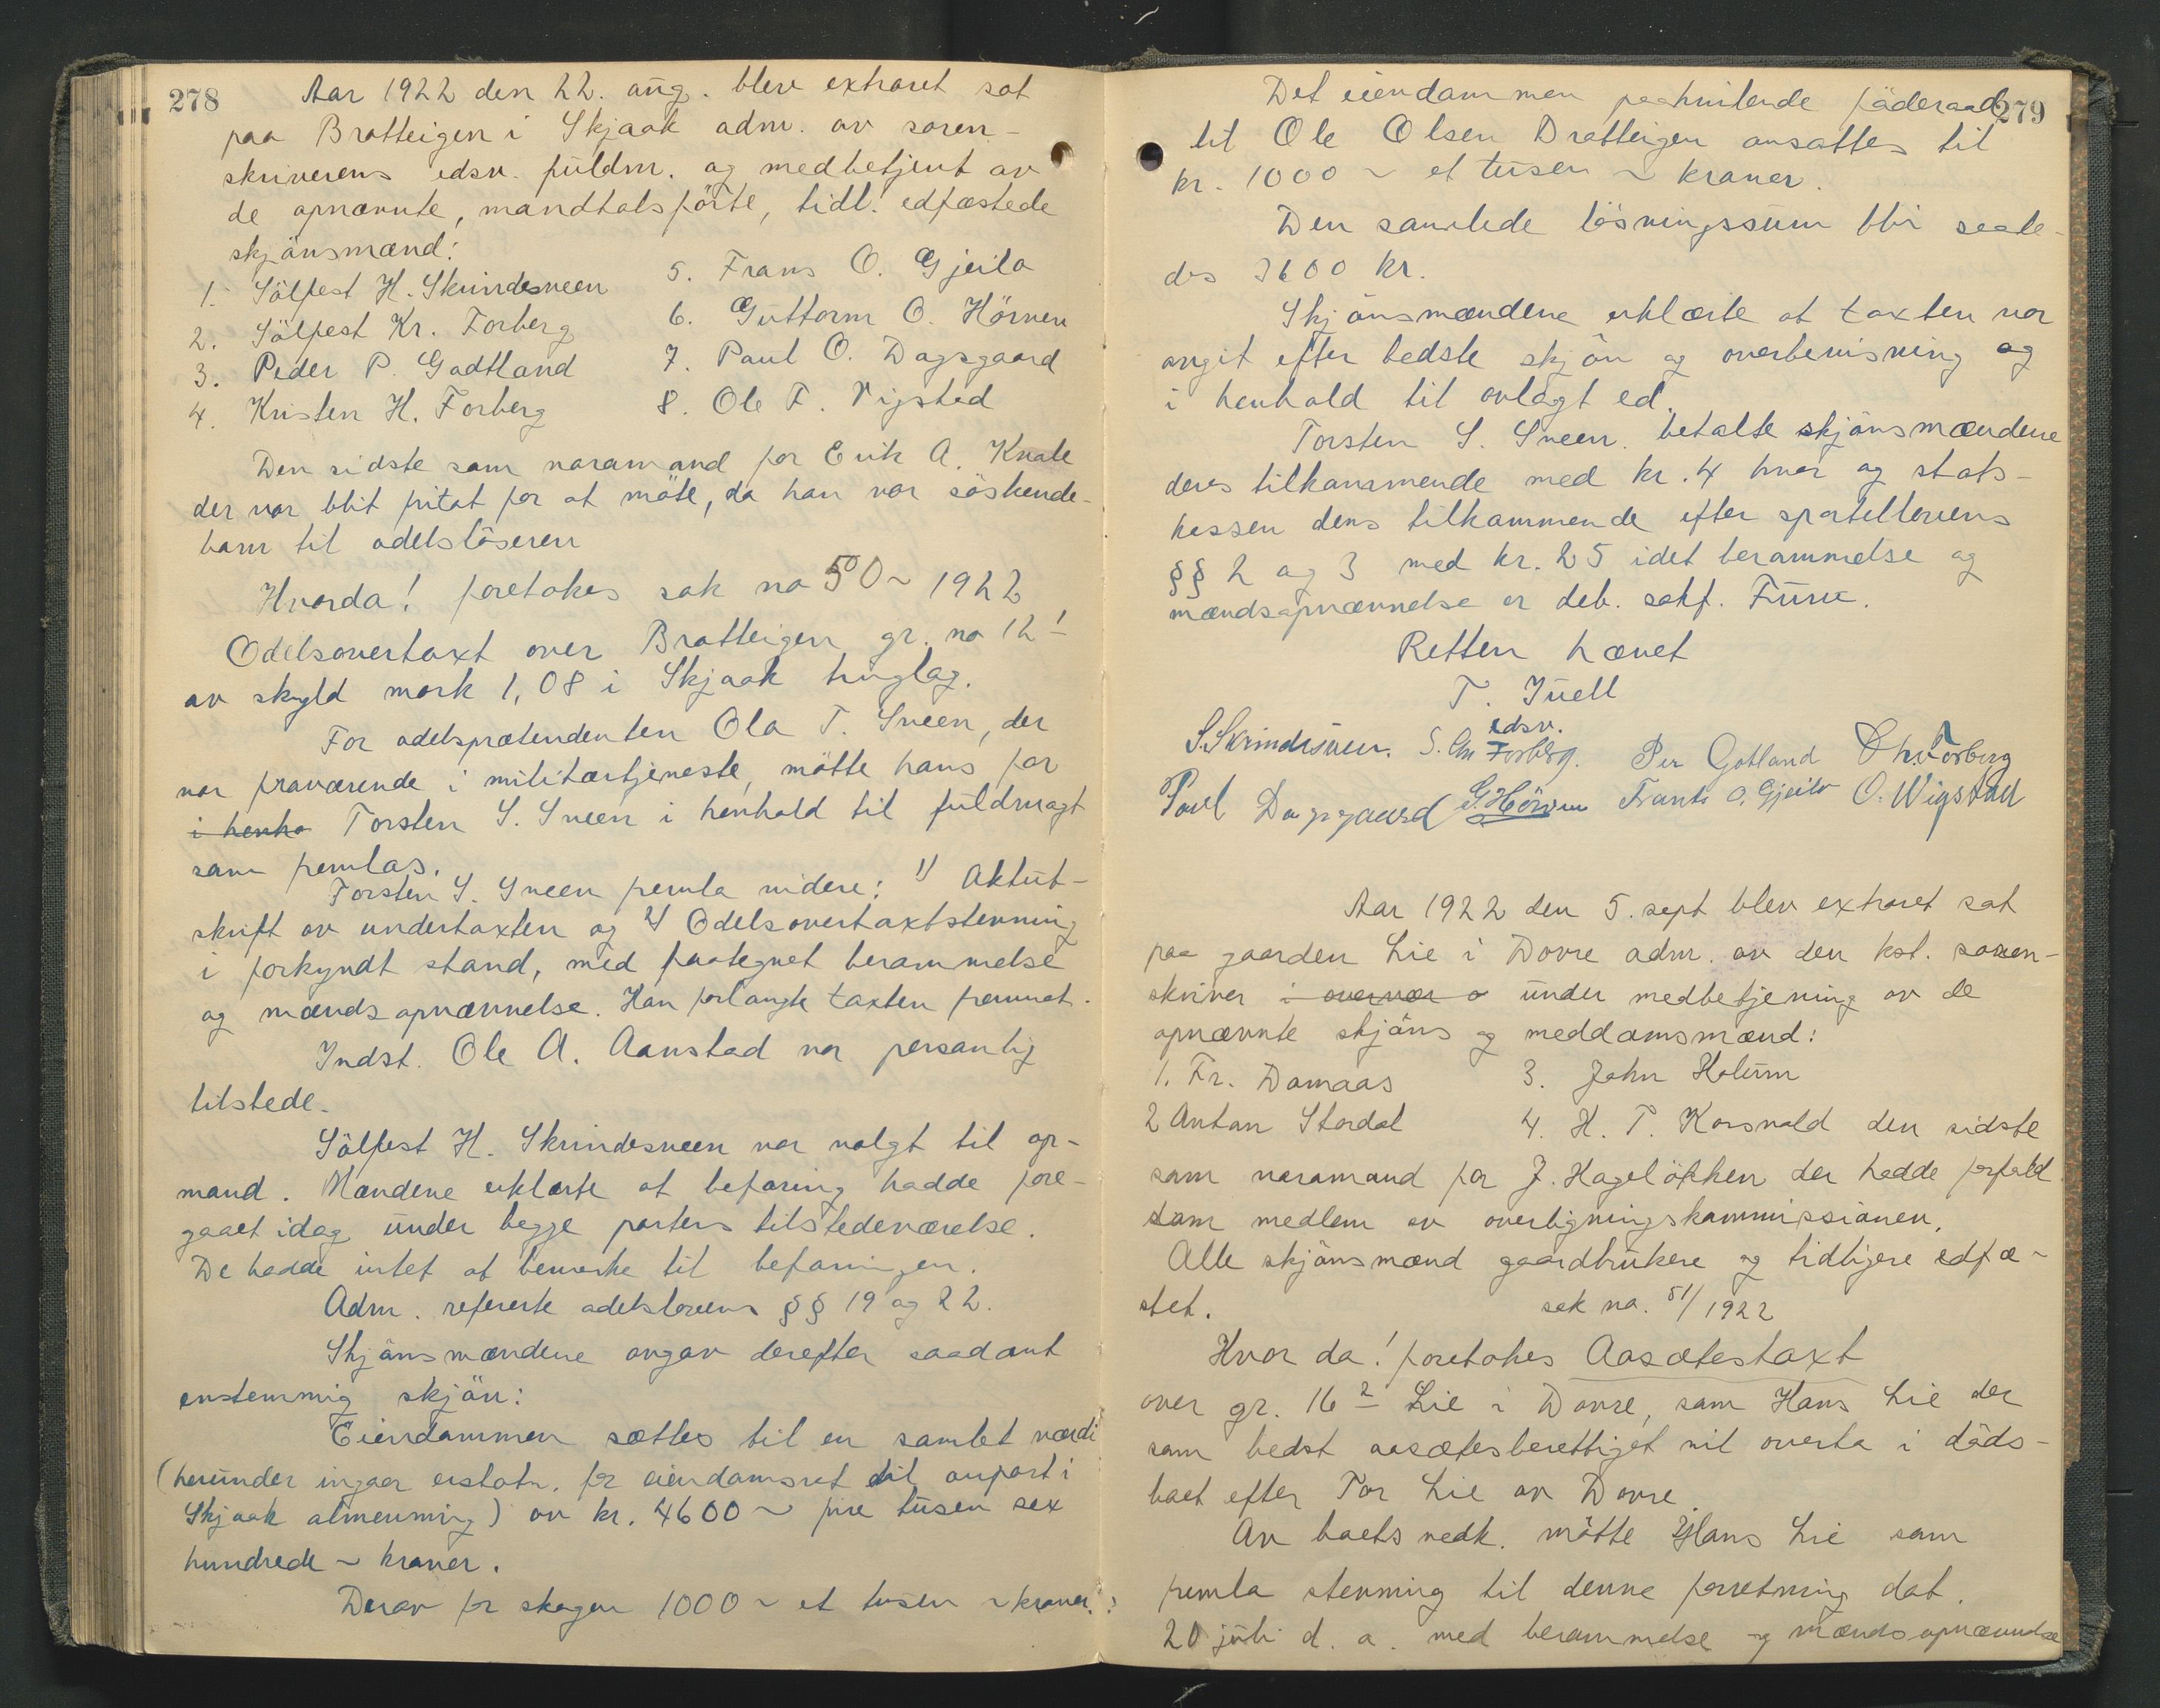 278
Aar 1922 den 22. aug. blev extraret sat
paa Bratteigen i Skjaak adm. av soren-
skriverens edsv. fuldm. og medbetjent av
de opnævnte, mandtalsförte, tidl. edfæstede
skjönsmænd:
1. Sölfest H. Skrindesveen
2. Sölfest Kr. Forberg
3. Peder P. Gadtland
4. Kristen H. Forberg
5. Frans O. Gjeilo
6. Guttorm O. Hörven
7. Paul O. Dagsgaard
8. Ole F. Vigsted
Den sidste som varamand for Erik A. Kvale
der var blit fritat for at möte, da han var söskende-
barn til odelslöseren
Hvorda! foretokes sak no 50 ~ 1922
Odelsovertaxt over Bratteigen gr. no 12 1
av skyld mark 1,08 i Skjaak tinglag.
For odelsprætendenten Ola T. Sveen, der
var fraværende i militærtjeneste, mötte hans far
i henho Torsten S. Sveen i henhold til fuldmagt
som fremlas.
Torsten S. Sveen fremla videre: 1) Aktut-
skrift av undertaxten og 2) Odelsovertaxtstevning
i forkyndt stand, med paategnet berammelse
og mændsopnævnelse. Han forlangte taxten fremmet.
Indst. Ole A. Aanstad var personlig
tilstede.
Sölfest H. Skrindesveen var valgt til op-
mand. Mændene erklærte at befaring hadde fore-
gaaet idag under begge parters tilstedeværelse.
De hadde intet at bemerke til befaringen.
Adm. refererte odelslovens §§ 19 og 22.
Skjönsmændene avgav derefter saadant
enstemmig skjön:
Eiendommen sættes til en samlet værdi
(herunder ingaar erstatn. for eiendomsret til anpart i
Skjaak almenning) av kr. 4600 ~ fire tusen sex
hundrede ~ kroner.
Derav for skogen 1000 ~ et tusen ~ kroner.
279
Det eiendommen paahvilende föderaad
til Ole Olsen Bratteigen ansattes til
kr. 1000 ~ et tusen ~ kroner.
Den samlede lösningssum blir saale-
des 3600 kr.
Skjönsmændene erklærte at taxten var
avgit efter bedste skjön og overbevisning og
i henhold til avlagt ed.
Torsten S. Sveen betalte skjönsmændene
deres tilkommende med kr. 4 hver og stats-
kassen dens tilkommende efter sportellovens
§§ 2 og 3 med kr. 25 idet berammelse og
mændsopnævnelse er deb. sakf. Furu.
Retten hævet
T. Juell
edsv.
S. Skrindsveen. S. Chr Forberg. Per Gotland Chr. Forberg
Povl Dagsgaard G. Hörven Frants O. Gjeilo O. Wigstad
Aar 1922 den 5. sept blev extraret sat
paa gaarden Lie i Dovre adm. av den kst. soren-
skriver i overvær o under medbetjening av de
opnævnte skjöns og meddomsmænd:
1. Fr. Domaas
2 Anton Stordal
3. John Holum
4. H. P. Korsvold den sidste
som varamand for J. Hagelökken der hadde forfald
som medlem av overligningskommissionen.
Alle skjönsmænd gaardbrukere og tidligere edfæ-
stet.
sak no. 51/1922
Hvor da! foretokes Aasætestaxt
over gr. 16 2 Lie i Dovre, som Hans Lie der
som bedst aasætesberettiget vil overta i döds-
boet efter Tor Lie av Dovre.
Av boets vedk. mötte Hans Lie som
fremla stevning til denne forretning dat.
20 juli d. a. med berammelse og mændsopnævnelse